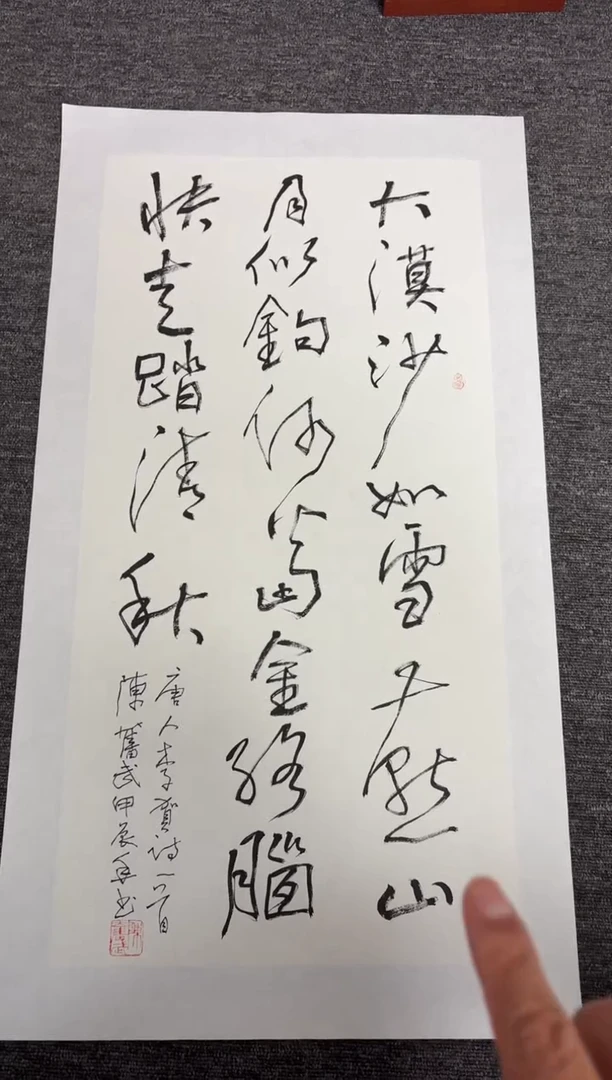 大漠沙如雪燕山
月似鉤何當金絡腦
快走踏清秋
唐人李賀詩一首
陳奮武甲辰年書